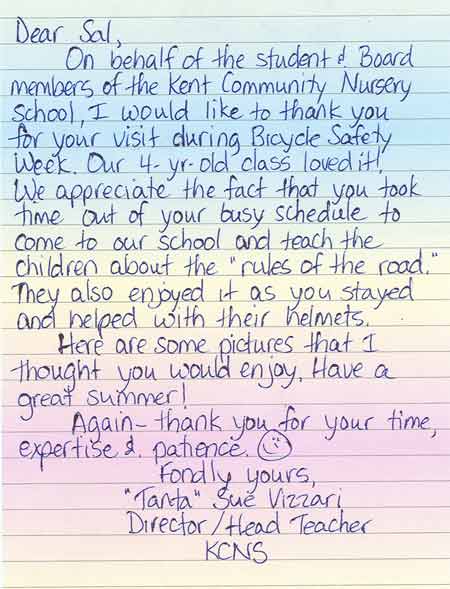 Dear Sal,
On behalf of the student & Board
members of the Kent Community Nursery
School, I would like to thank you
for your visit during Bicycle Safety
Week. Our 4-yr-old class loved it!
We appreciate the fact that you took
time out of your busy schedule to
come to our school and teach the
children about the "rules of the road."
They also enjoyed it as you stayed
and helped with their helmets.
Here are some pictures that I
thought you would enjoy. Have a
great summer!
Again- thank you for your time,
expertise & patience.
Fondly yours,
"Tanta" Sue Vizzari
Director/Head Teacher
KCNS